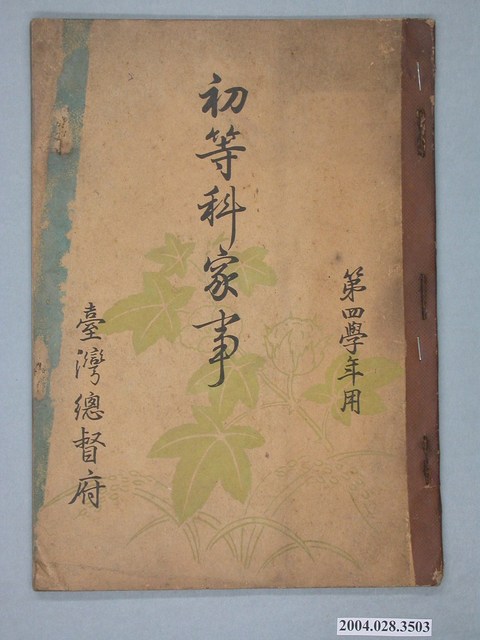 第四學年用
初等科家事
臺灣總督府
2004.028.3503